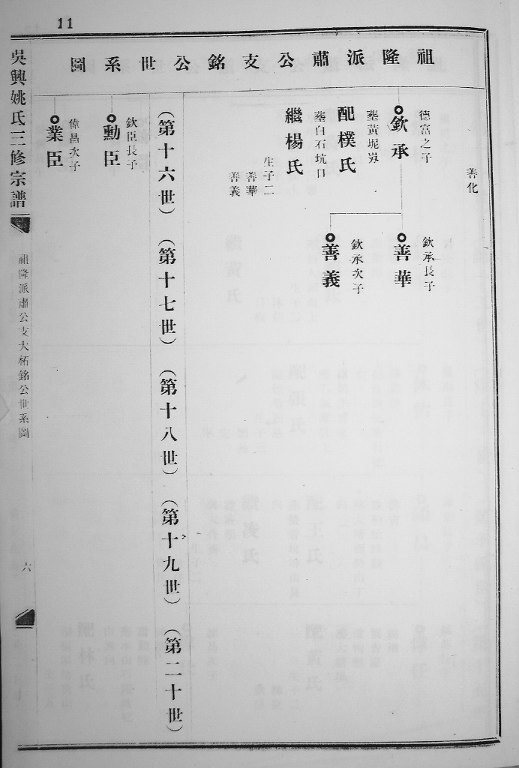 11
祖隆派肅公支銘公世系圖
善化
德富之子
欽承
墓黃坭㘭
配樸氏
墓白石坑口
繼楊氏
生子二
善華
善義
欽承長子
善華
欽承次子
善義
(第十六世)(第十七世)(第十八世)(第十九世)(第二十世)
欽臣長子
勳臣
偉昌次子
業臣
吳興姚氏三修宗譜
祖隆派肅公支大柘銘公世系圖
六